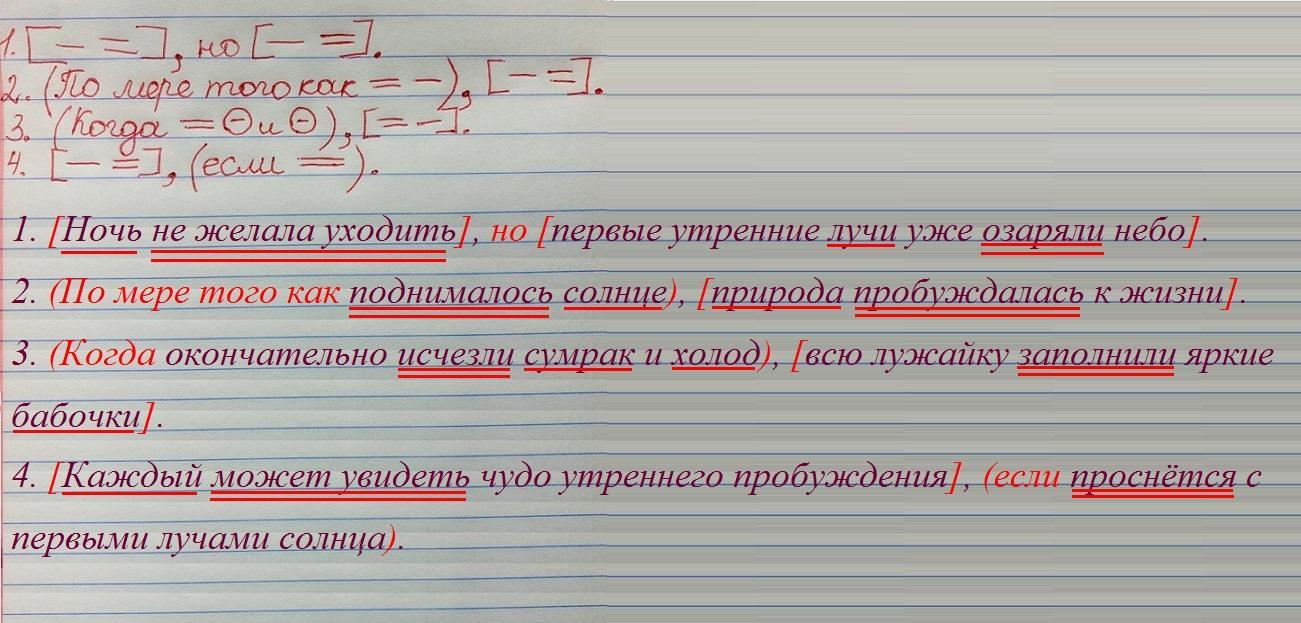 1. [— =], но [— =].
2. (По мере того как = —), [— =].
3. (Когда = ⊖ и ⊖), [= —].
4. [— =], (если =).
1. [Ночь не желала уходить], но [первые утренние лучи уже озаряли небо].
2. (По мере того как поднималось солнце), [природа пробуждалась к жизни].
3. (Когда окончательно исчезли сумрак и холод), [всю лужайку заполнили яркие
бабочки].
4. [Каждый может увидеть чудо утреннего пробуждения], (если проснётся с
первыми лучами солнца).